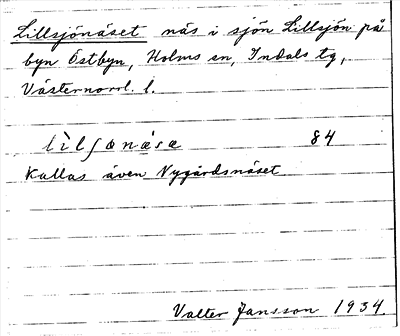 Lillsjönäset näs i sjön Lillsjön på
byn Östbyn, Holms sn, Indals tg,
Västernorrl. l.
lìlʃɵnǽsæ 84
Kallas även Nygårdsnäset
Valter Jansson 1934.